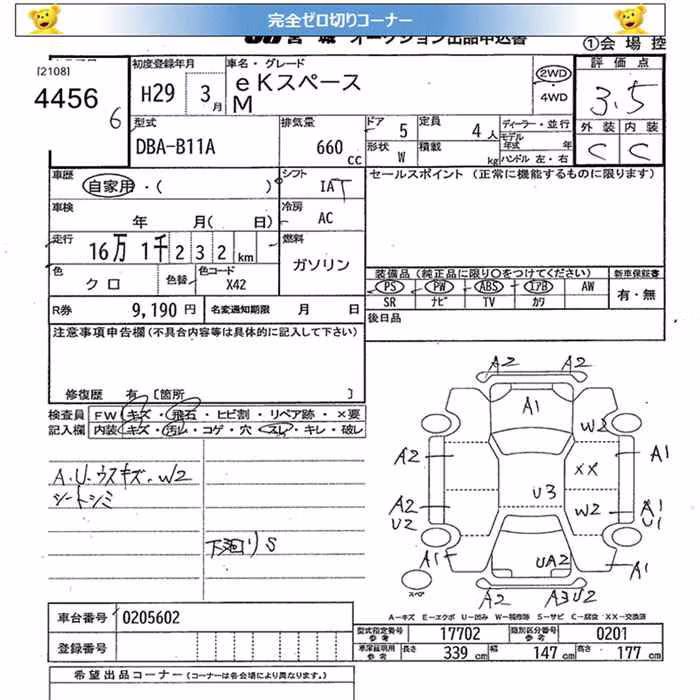 完全ゼロ切りコーナー
宮城 オークション出品申込書
①会場控
[2108]
4456
6
初度登録年月
H29 3月
車名・グレード
eKスペース
M
2WD
・4WD
評価点
3.5
外装 内装
C C
型式
DBA-B11A
排気量
660 cc
ドア 5
定員 4人
形状 W
積載 kg
ディーラー・並行
モデル年式 年
ハンドル 左・右
車歴
自家用・( )
シフト
IAT
セールスポイント(正常に機能するものに限ります)
車検
年 月(日)
冷房
AC
走行
16万1千232km
燃料
ガソリン
色
クロ
色替
色コード
X42
装備品(純正品に限り○をつけてください)
新車保証書
PS PW ABS エアB AW
SR ナビ TV カワ
有・無
R券 9,190円
名変通知期限 月 日
後日品
注意事項申告欄(不具合内容等は具体的に記入して下さい)
修復歴 有 [箇所 ]
検査員記入欄
FW キズ・飛石・ヒビ割・リペア跡・×要
内装 キズ・汚レ・コゲ・穴・スレ・キレ・破レ
A.U.ウスキズ.W2
シートシミ
下廻りS
A2 A2
A1
W2
A2
A1
XX
U3
A2
U2
W2
A1
U1
A1
UA2
A1
A2
A3U2
スペア
A-キズ E-エクボ U-凹み W-補修跡 S-サビ C-腐食 XX-交換済
車台番号 0205602
登録番号
型式指定番号参考 17702
類別区分番号参考 0201
車検証明用参考 長さ 339cm 幅 147cm 高さ 177cm
希望出品コーナー(コーナーは各会場により異なります。)